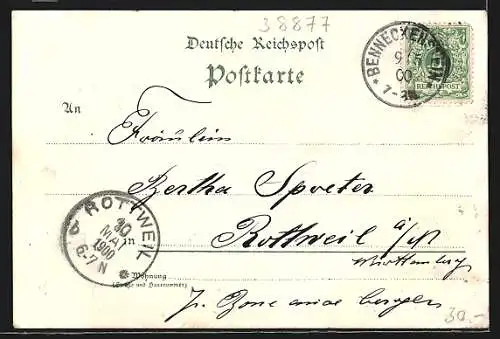 38877
Deutsche Reichspost
Postkarte
BENNECKENSTEIN
9 5
00
7-8N
REICHSPOST
An
Fräulein
Bertha
Rottweil a/N
in
Württemberg
ROTTWEIL
10
MAI
1900
6-7N
Wohnung
(Straße und Hausnummer)
30.-